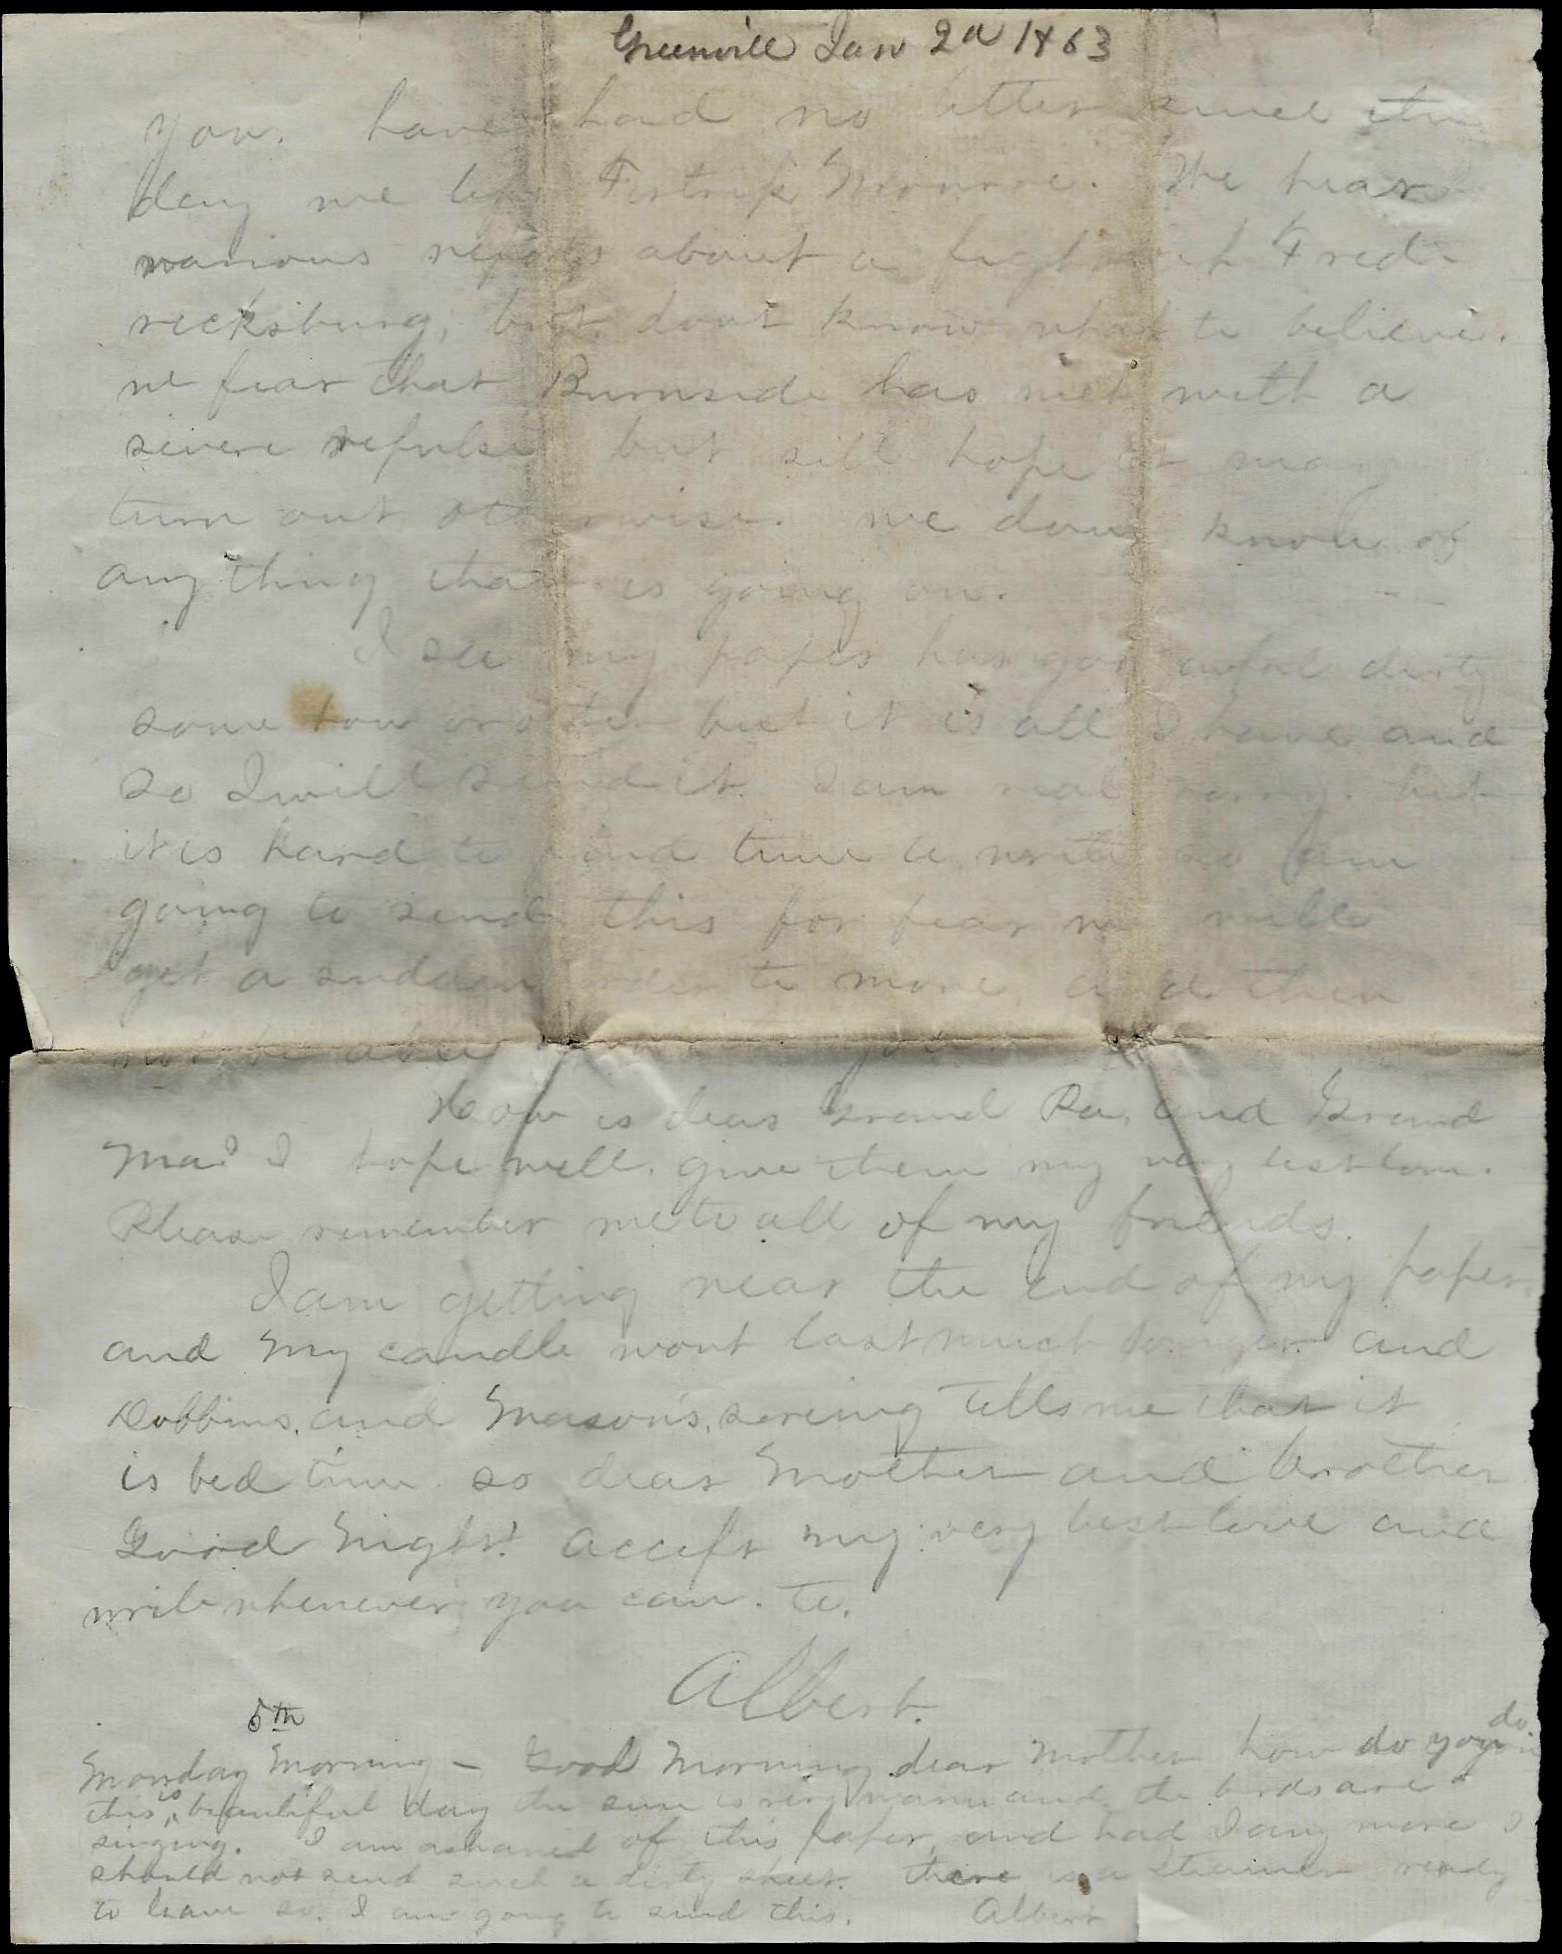 Greenville Jan 2d 1863
you. have had no letter since the
day we left Fortress Monroe. We hear
various reports about a fight at Frede
ricksburg, but dont know what to believe.
we fear that Burnside has met with a
severe repulse but still hope it may
turn out otherwise. we dont know of
anything that is going on.
I see my paper has got awful dirty
some how or other but it is all I have and
so I will send it. I am real sorry. but
it is hard to find time to write so am
going to send this for fear we will
get a sudden order to move, and then
not be able to you
How is dear Grand Pa, and Grand
Ma? I hope well. give them my very best love.
Please remember me to all of my friends.
I am getting near the end of my paper,
and my candle wont last much longer. and
Dobbins, and Mason's, snoring tells me that it
is bed time. so dear Mother and brother
Good Night! accept my very best love and
write whenever you can. to.
Albert.
5th
Monday Morning - Good Morning dear Mother how do you do.
this is beautiful day the sun is very warm and the birds are
singing. I am ashamed of this paper, and had I any more I
should not send such a dirty sheet. there is a Steamer ready
to leave so. I am going to send this. Albert